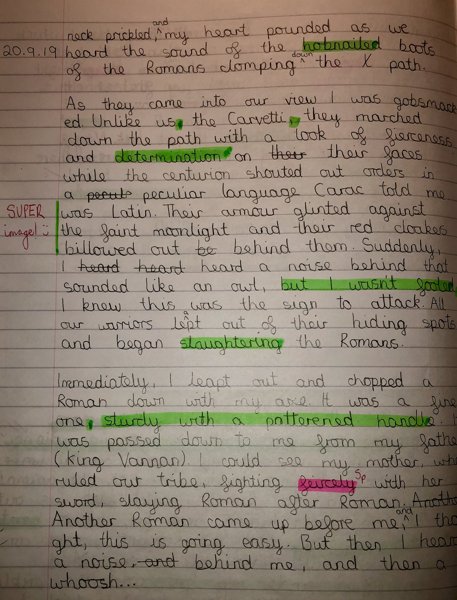 neck prickled, and my heart pounded as we
20.9.19 heard the sound of the hobnailed boots
of the Romans clomping down the X path.
As they came into our view I was gobsmack
ed. Unlike us, the Carvetti, they marched
down the path with a look of fierceness
and determination on their their faces
while the centurion shouted out orders in
a peculi peculiar language Carac told me
SUPER image! was Latin. Their armour glinted against
the faint moonlight and their red cloakes
billowed out be behind them. Suddenly,
I heard heard heard a noise behind that
sounded like an owl, but I wasn't fooled
I knew this was the sign to attack. All
our warriors lept out of their hiding spots
and began slaughtering the Romans.
Immediately, I leapt out and chopped a
Roman down with my axe. It was a fine
one, sturdy with a patterened handle.
was passed down to me from my fathe
(King Vannan). I could see my mother, wh
ruled our tribe, fighting feircely sp with her
sword, slaying Roman after Roman. Anoth
Another Roman came up before me and I tho
ght, this is going easy. But then I hear
a noise, and behind me, and then a
whoosh...